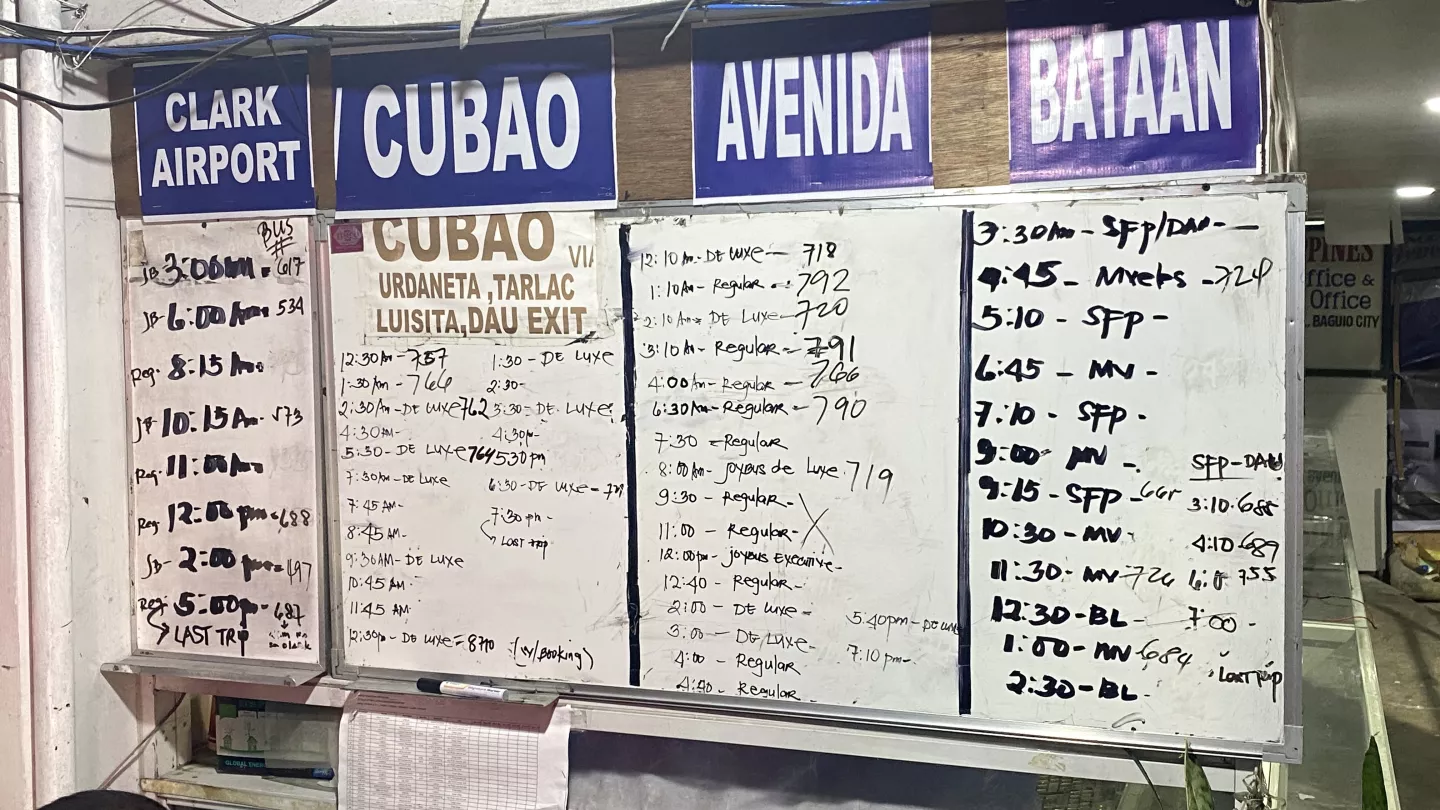 CLARK
AIRPORT
CUBAO
AVENIDA
BATAAN
BUS
#
JB 3:00am = 617
JB- 6:00Am. 534
Reg. 8:15 Am.
JB- 10:15 Am- 573
Reg. 11:00 Am
Reg. 12:00 pm = 688
JB- 2:00 pm = 497
Reg. 5:00p- 687
LAST TRIP
CUBAO VIA
URDANETA ,TARLAC
LUISITA,DAU EXIT
12:30 Am - 757
1:30 Am - 766
2:30 Am - DE LUXE 762
4:30 AM-
5:30 - DE LUXE 764
7:30 Am - DE LUXE
7:45 AM-
8:45 AM-
9:30 AM- DE LUXE
10:45 AM-
11:45 AM-
12:30p- DE LUXE = 8770 (w/Booking)
1:30 - DE LUXE
2:30-
3:30- DE LUXE
4:30p-
530 pm
6:30- DE LUXE -
7:30 pm -
LAST trip
12:10 Am- DE LUXE - 718
1:10 Am- Regular - 792
2:10 Am - DE LUXE - 720
3:10 A- Regular - 791
4:00 Am- Regular - 766
6:30 Am- Regular - 790
7:30 - Regular
8:00 Am- joyous de Luxe. 719
9:30 - Regular-
11:00 - Regular-
12:00pm- joyous Executive-
12:40 - Regular-
2:00 - DE LUXE -
3:00 - DE LUXE-
4:00 - Regular
4:40 - Regular
5:40pm - DE LUXE
7:10 pm-
3:30 Am - SFP/DAU -
4:45 - Mveles - 724
5:10 - SFP -
6:45 - MV -
7:10 - SFP -
9:00 - MV -
9:15 - SFP -
10:30 - MV-
11:30- MV- 726
12:30 - BL -
1:00 - MV 684
2:30 - BL-
SFP - DAU
3:10-688
4:10-689
755
7:00 -
LAST trip
PINES
ffice &
Office
BAGUIO CITY